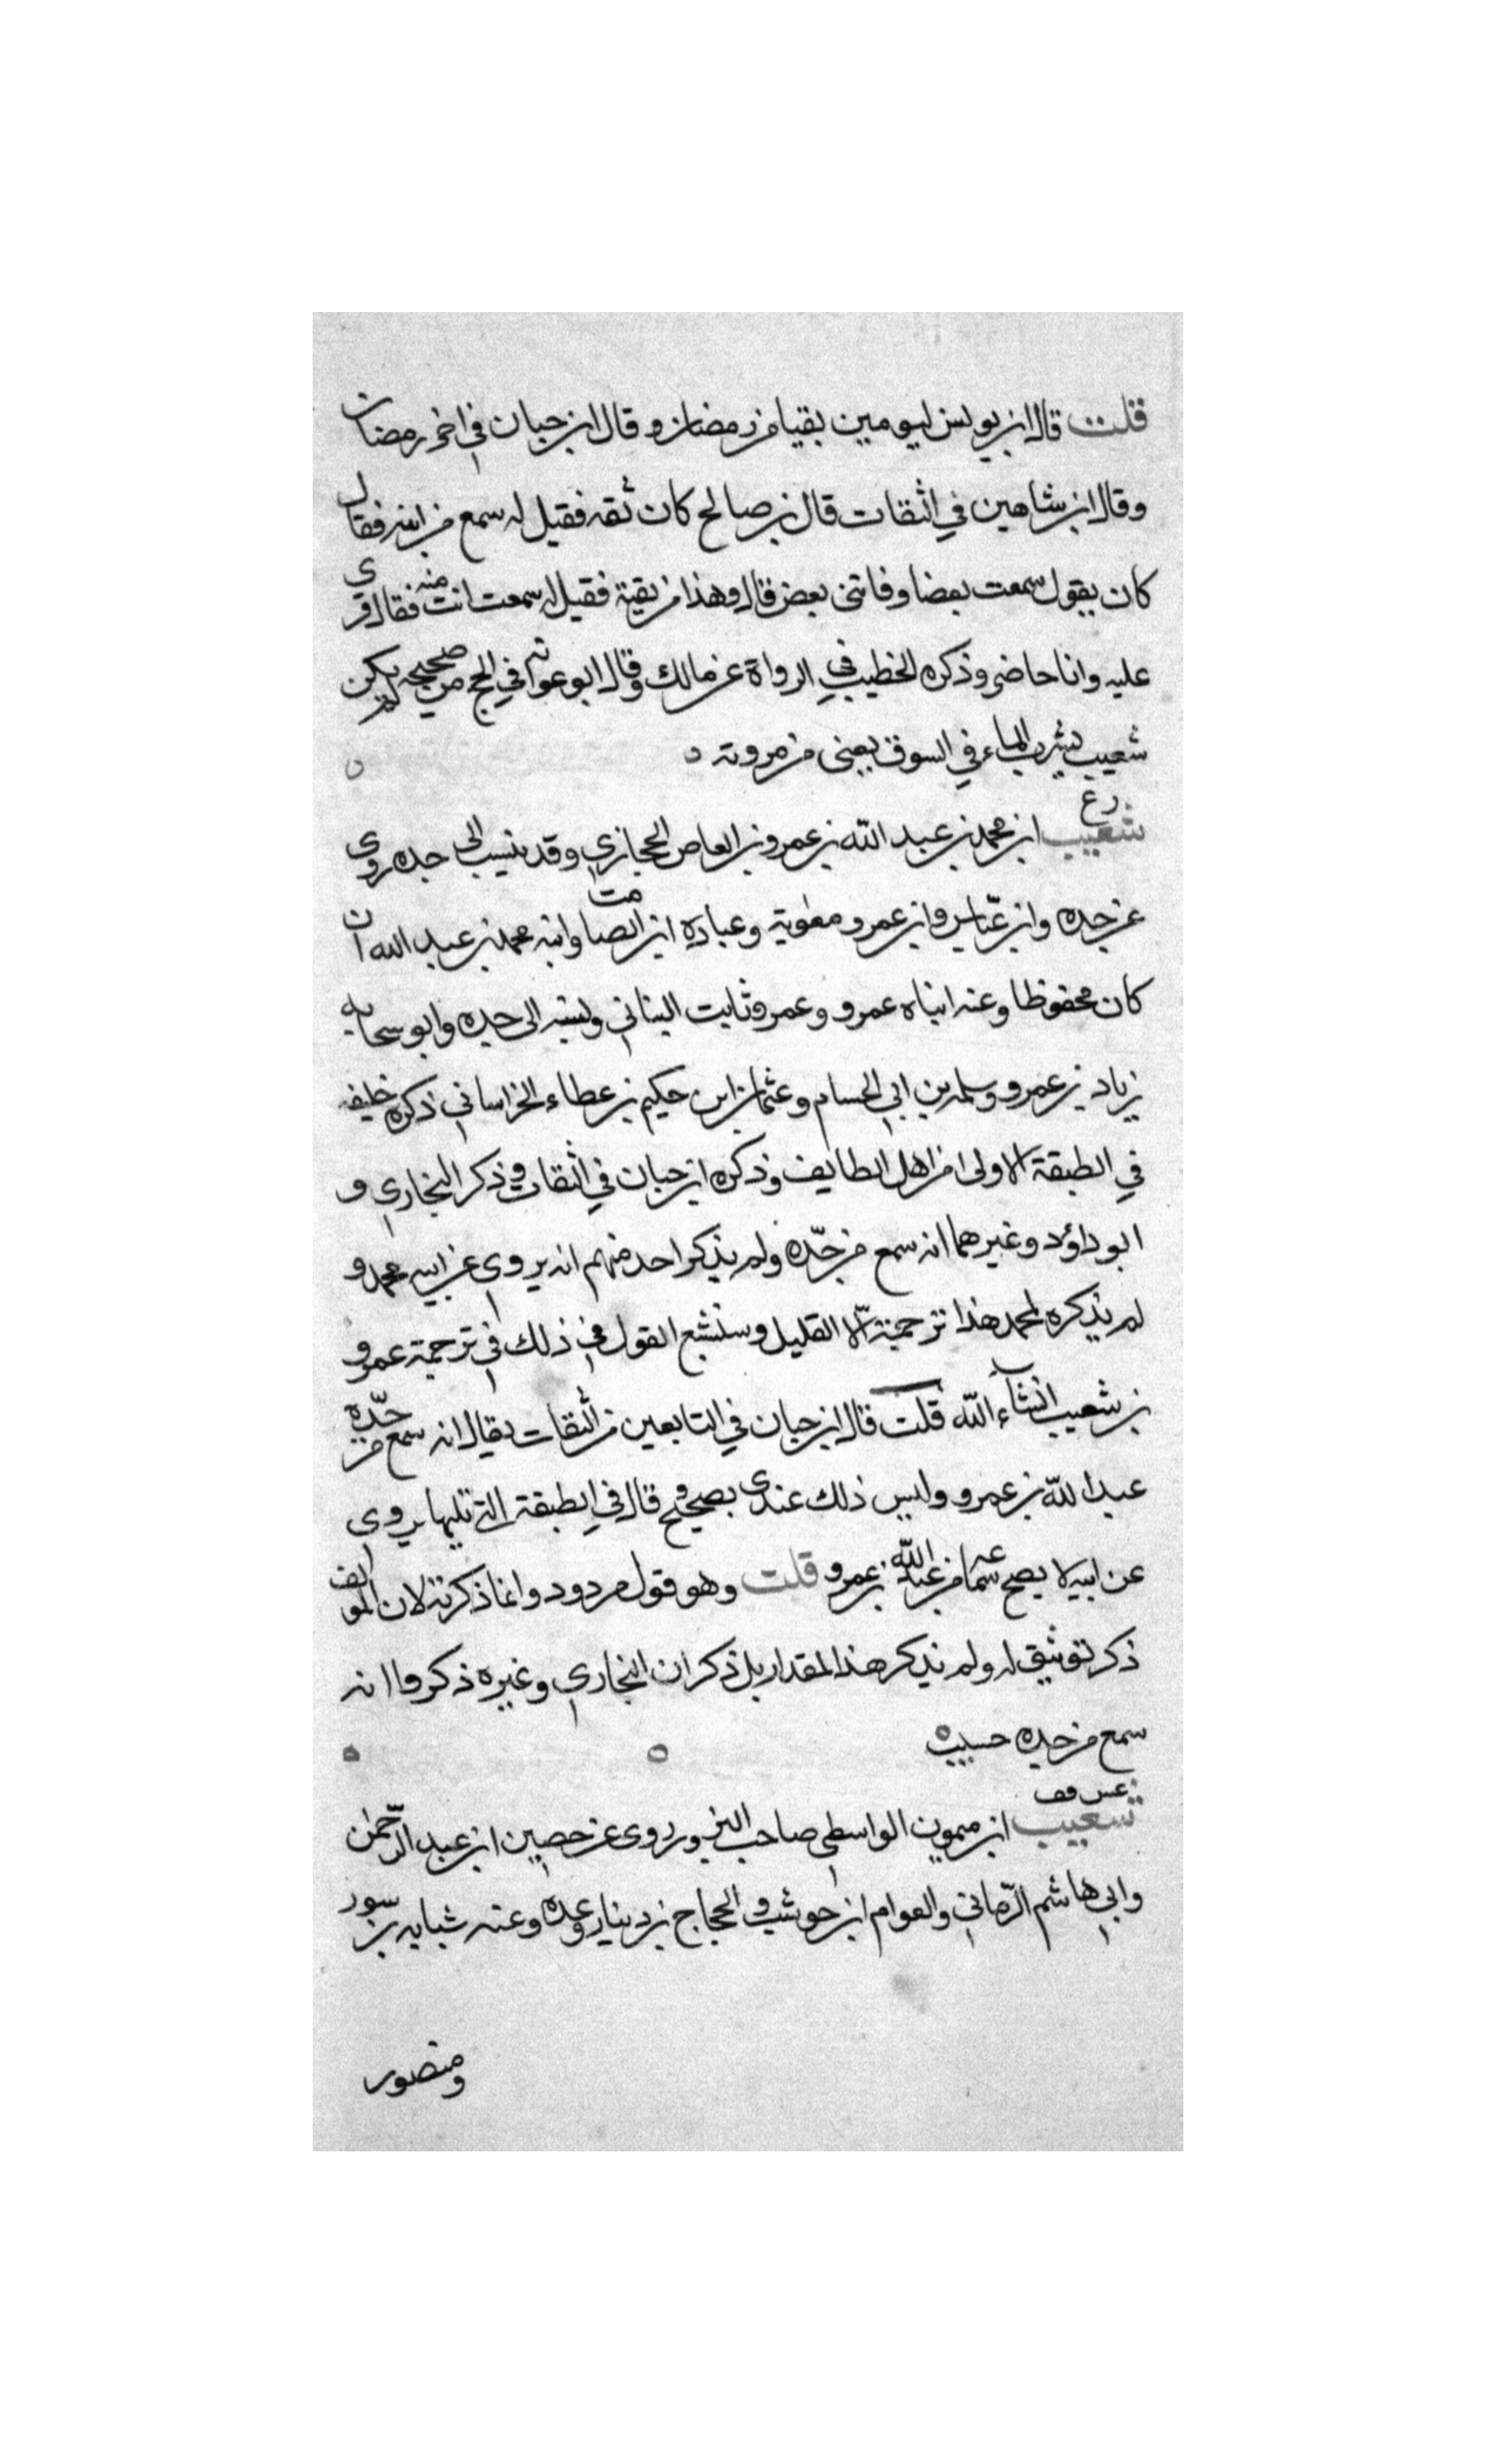 قلت قال ابن يونس ليومين بقيا من رمضان وقال ابن حبان في اخر رمضان
وقال ابن شاهين في الثقات قال بن صالح كان ثقه فقيل له سمع من ابيه فقال
كان يقول سمعت بعضا وفاتني بعض قال وهذا من بقية فقيل له سمعت انت منه فقال قرى
عليه وانا حاضر وذكره الخطيب في الرواة عن مالك وقال ابو عوانه في الحج من صحيحه لم يكن
شعيب يشرب الماء في السوق يعني من مروته
رع
شعيب ابن محمد بن عبد الله بن عمرو بن العاص الحجازي وقد ينسب الى جده روى
عن جده وابن عباس وابن عمر ومعوية وعبادة ابن الصامت وابنه محمد بن عبد الله ان
كان محفوظا وعنه ابناه عمرو وعمر وثابت البناني ونسبه الى جده وابو سحابه
زياد بن عمرو وسلمه بن ابي الحسام وعثمان ابن حكيم بن عطاء الخراساني ذكره خليفه
في الطبقة الاولى من اهل الطايف وذكره ابن حبان في الثقات وذكر البخاري و
ابو داؤد وغيرهما انه سمع من جده ولم يذكر احد منهم انه يروى عن ابيه محمد و
لم يذكره لمحمد هذا ترجمة الا القليل وسنشبع القول في ذلك في ترجمة عمرو
بن شعيب انشاء الله قلت قال ابن حبان في التابعين من الثقات يقال انه سمع من جده
عبد الله بن عمرو وليس ذلك عندى بصحيح وقال في الطبقة التي تليها يروى
عن ابيه لا يصح سماعه من عبد الله بن عمرو قلت وهو قول مردود وانما ذكرته لان المولف
ذكر توثيق له ولم يذكر هذا المقدار بل ذكر ان البخاري وغيره ذكروا انه
سمع من جده حسب
عس فق
شعيب ابن ميمون الواسطي صاحب البزور روى عن حصين ابن عبد الرحمن
وابي هاشم الرماني والعوام ابن حوشب والحجاج بن دينار وعده وعنه شبابه بن سور
ومنصور